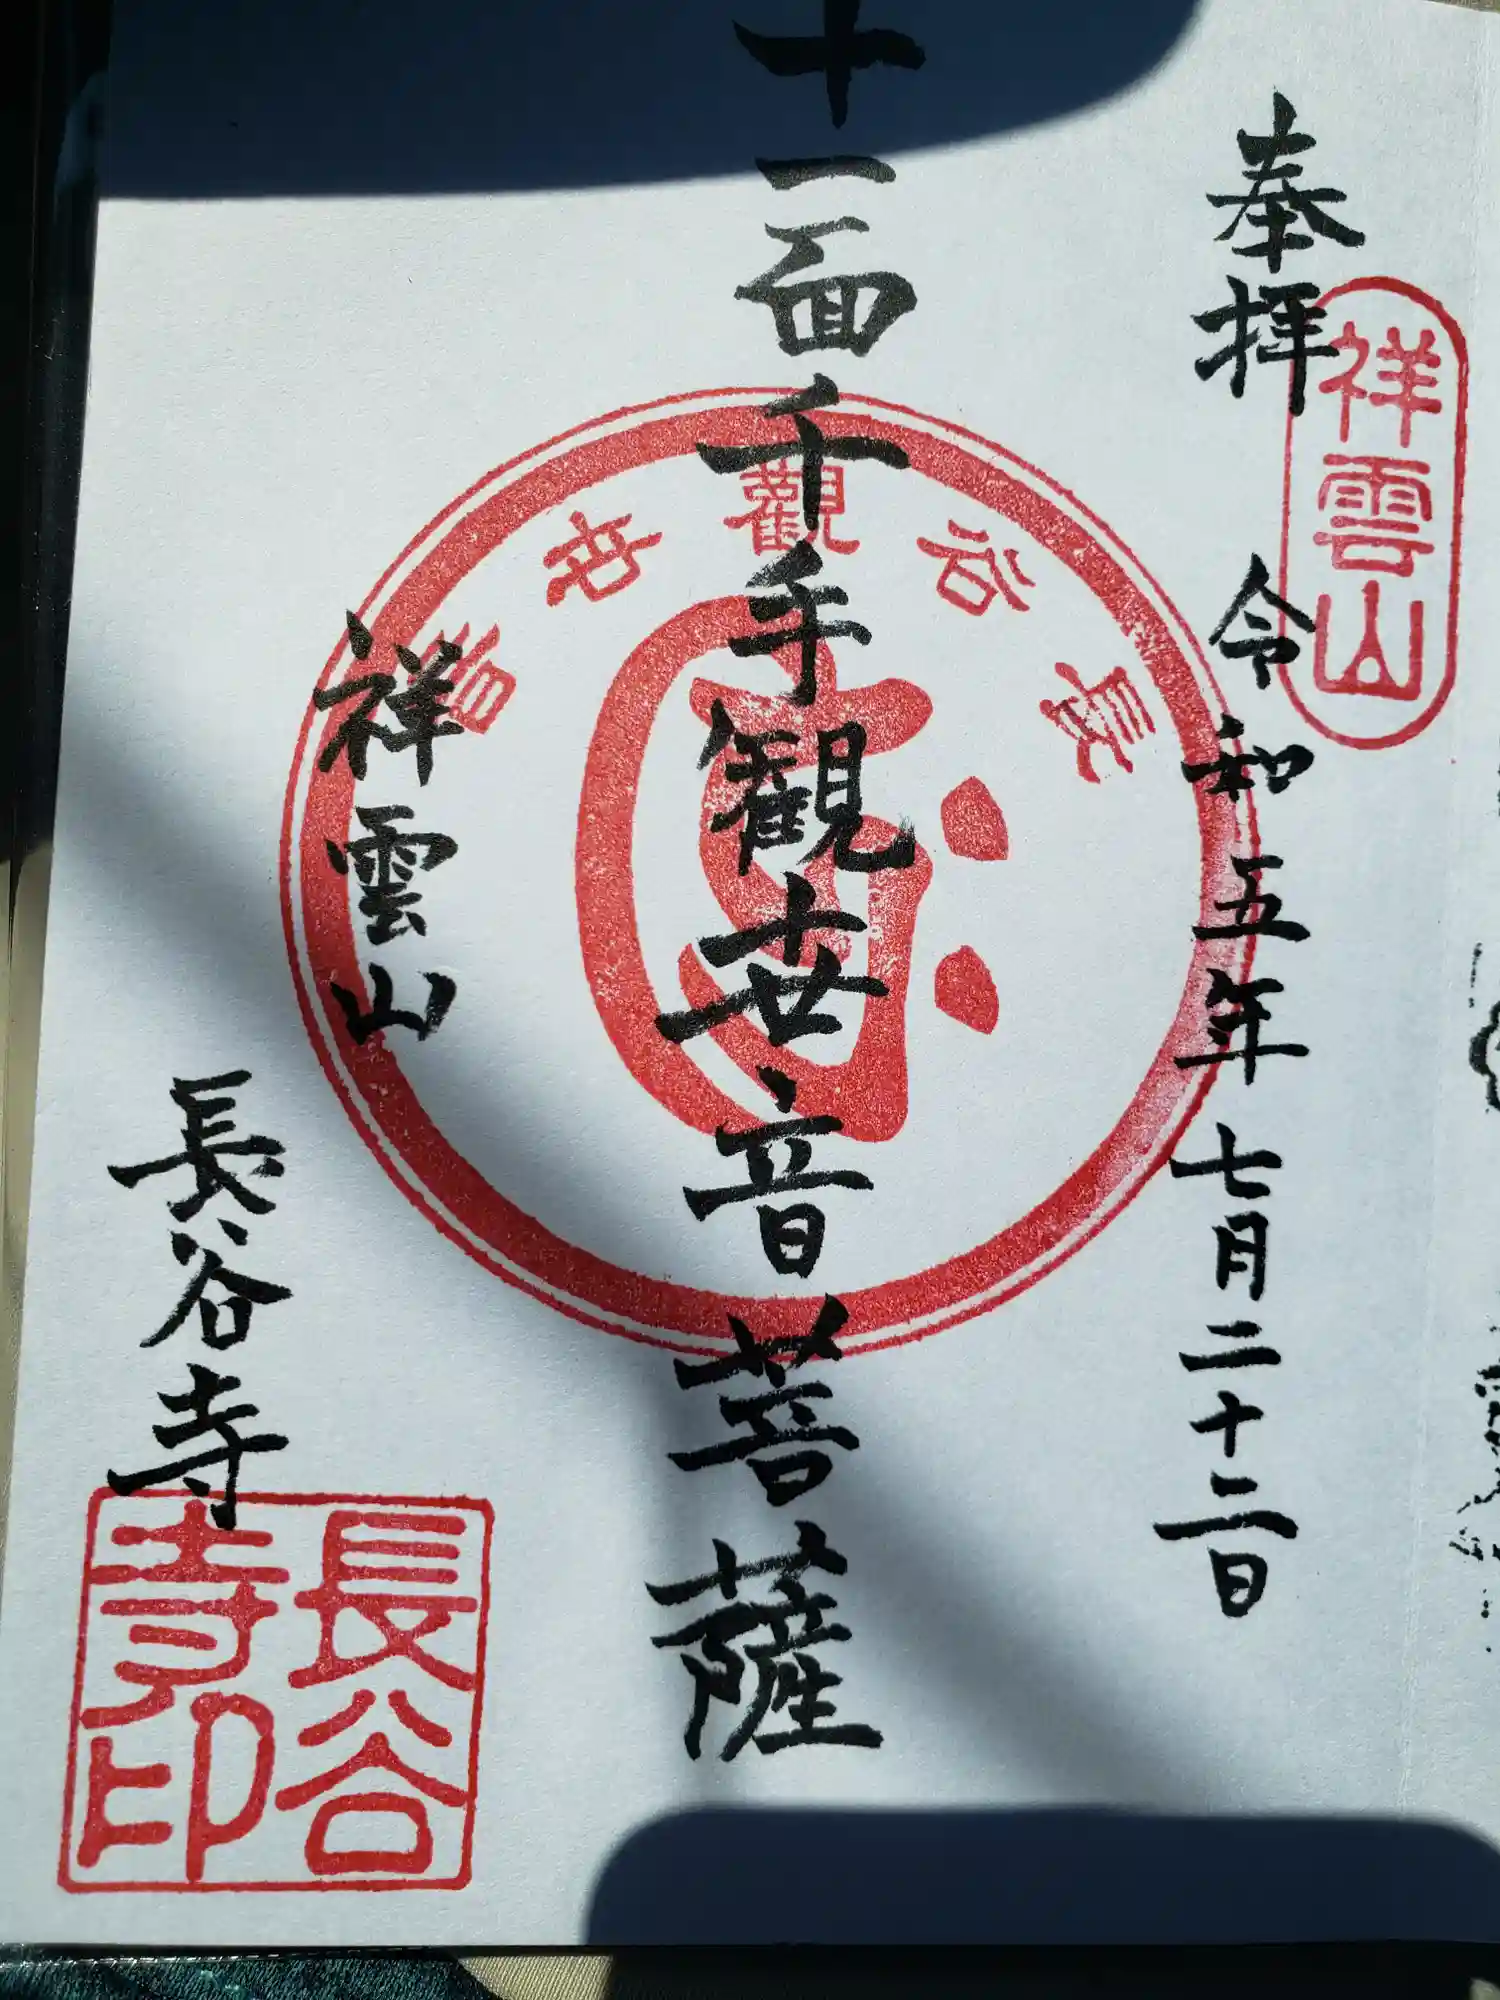 奉拝
祥雲山
令和五年七月二十二日
十一面千手観世音菩薩
長谷観世音
祥雲山
長谷寺
長谷寺印